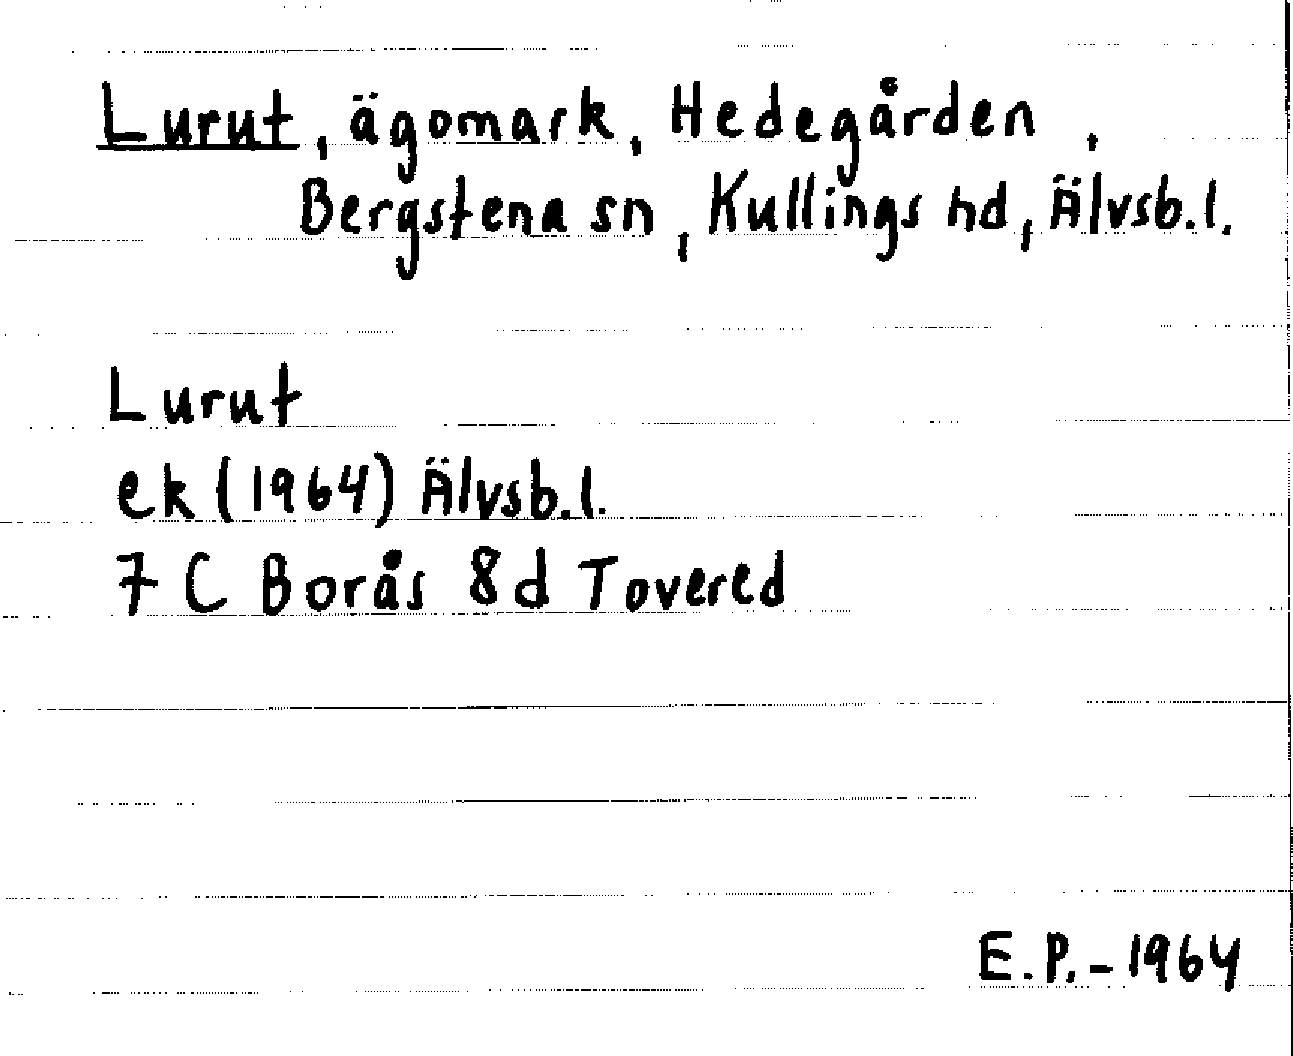 Lurut, ägomark, Hedegården,
Bergstena sn, Kullings hd, Älvsb.l.
Lurut
ek (1964) Älvsb.l.
7 C Borås 8d Tovered
E.P. - 1964